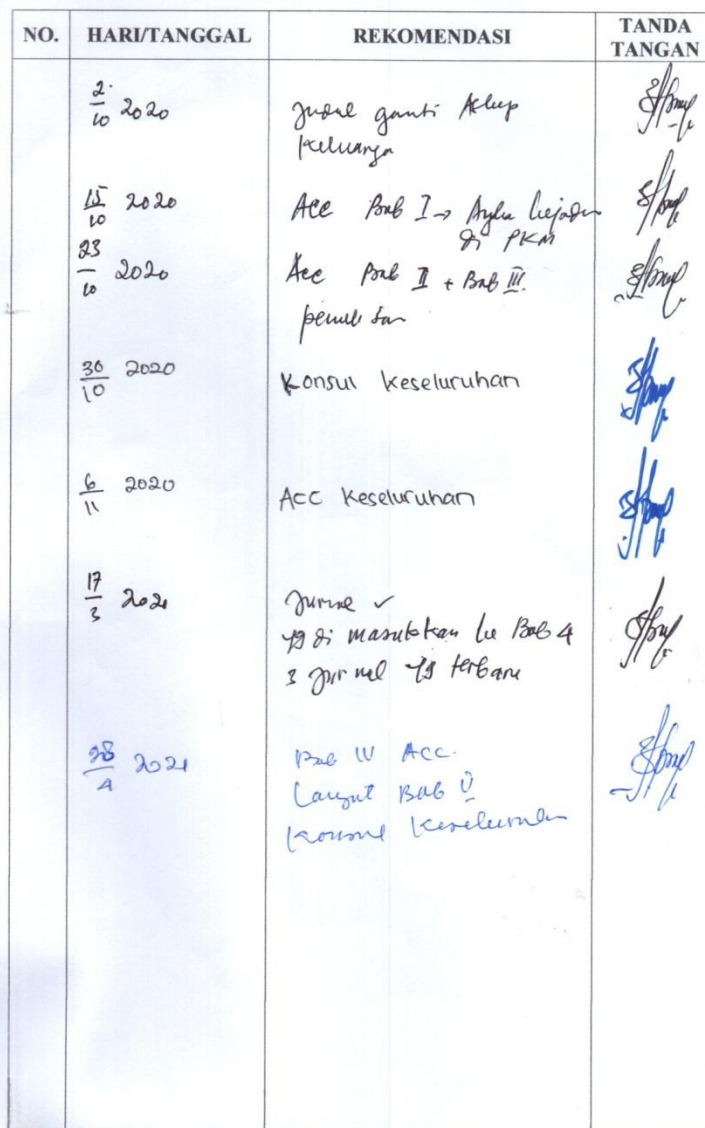 NO. HARI/TANGGAL REKOMENDASI TANDA TANGAN
2/10 2020 Judul ganti Askep
Keluarga
15/10 2020 Acc Bab I → Angka kejadian
di PKM
23/10 2020 Acc Bab II + Bab III
30/10 2020 Konsul Keseluruhan
6/11 2020 Acc Keseluruhan
17/3 2021 Jurnal ✓
yg di masukkan ke Bab 4
3 Jurnal yg terbaru
28/4 2021 Bab IV Acc.
Lanjut Bab V
Konsul Keseluruhan